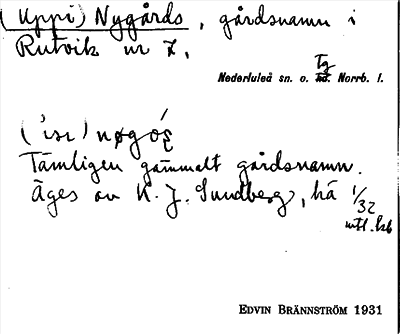 (Uppi) Nygårds, gårdsnamn i
Rutvik nr 7.
Tg
Nederluleå sn. o. hd. Norrb. l.
Tämligen gammalt gårdsnamn.
Äges av K. J. Sundberg, há 1/32
mtl. skb
EDVIN BRÄNNSTRÖM 1931